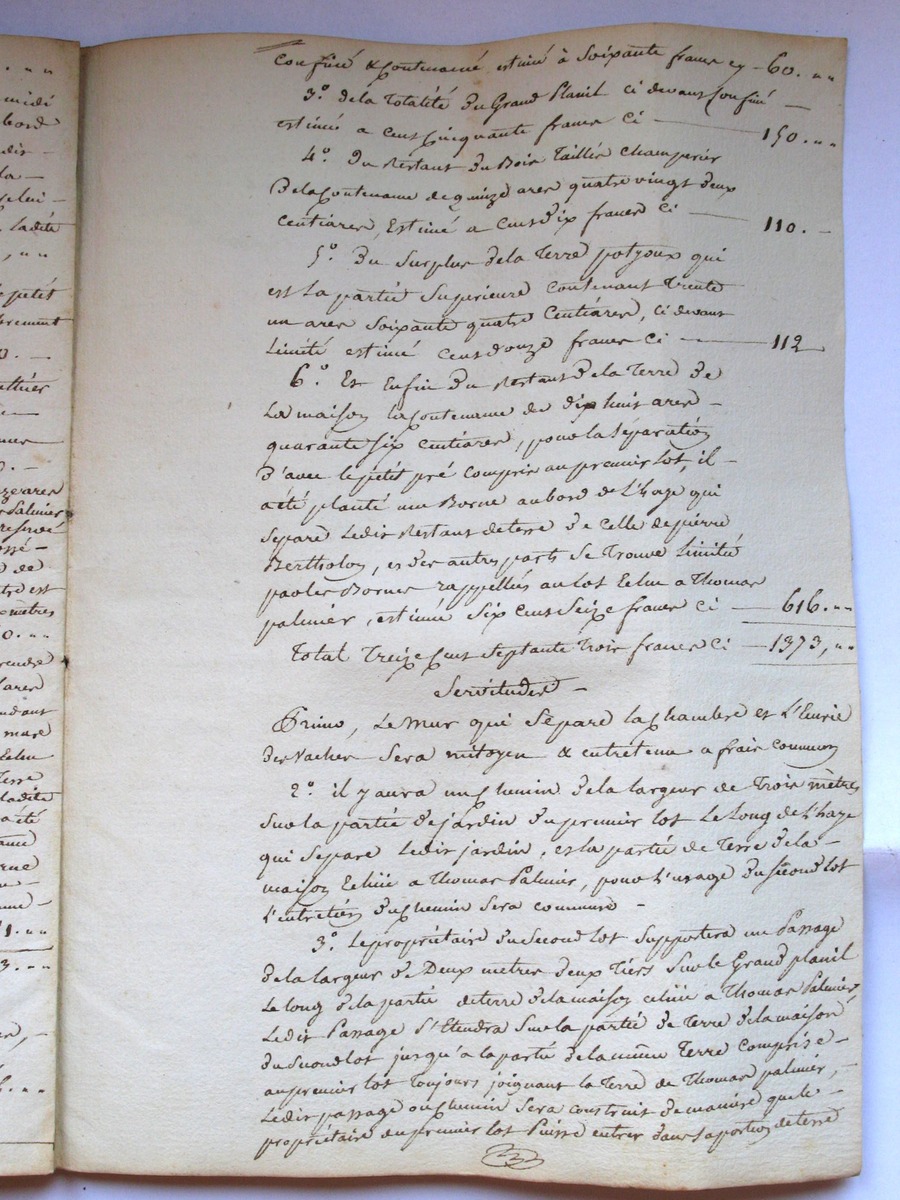 midi
bord
la –
ladité
petit
0. –
Palmier
de
0. „„
ares
mare
Terre
ladite
3. „„
Confiné & Contenancé estimé à Soixante francs cy – 60. „„
3.° de la Totalité du Grand Planil ci devant Confiné –
estimé a Cent Cinquante francs Ci – 150. „„
4.° du Restant du Bois Taillis Champerier
de la Contenance de quinze ares quatre vingt deux
Centiares, Estimé a Cent dix francs ci – 110. –
5.° du Surplus de la Terre potyoux qui
est la partie Superieure Contenant Trente
un ares Soixante quatre Centiares, ci devant
Limité estimé Cent douze francs Ci – 112
6.° Et Enfin du Restant de la Terre de
La maison la Contenance de dix huit ares –
quarante Six Centiares, pour la Separation
d'avec le petit pré Compris au premier lot, il –
a été planté une Borne au bord de L'haze qui
Separe Ledit Restant de terre de Celle de pierre
Bertholon, et des autres parts se Trouve Limité
par les Bornes rappellées au lot Echu a Thomas
palmier, estimée Six Cent Seize francs Ci – 616. „„
Total Treize Cent Septante Trois francs Ci – 1373, „„
Servitudes –
Primo, Le Mur qui Sépare la Chambre et L'Eurie
des Vaches Sera mitoyen & entretenu a frais Commun
2.° il y aura un Chemin de la largeur de Trois mètres
Sur la partie de jardin du premier lot Le Long de L'haze
qui Separe Ledit jardin, est la partie de Terre de la –
maison Echüe a Thomas Palmier, pour L'usage du Second lot
L'entretien du Chemin Sera Commun –
3.° Le propriétaire du Second lot Supportera un Passage
de la largeur de Deux metres deux Tiers Sur le Grand planil
Le long de la partie de terre de la maison echüe a Thomas Palmier,
Ledit Passage S'Etendra Sur la partie de Terre de la maison
du Second lot jusqu'a la partie de la même Terre Comprise –
au premier lot Toujours joignant la Terre de Thomas palmier, –
Ledit passage ou Chemin Sera Construit de maniere que le –
propriétaire du premier lot Puisse entrer dans sa portion de terre